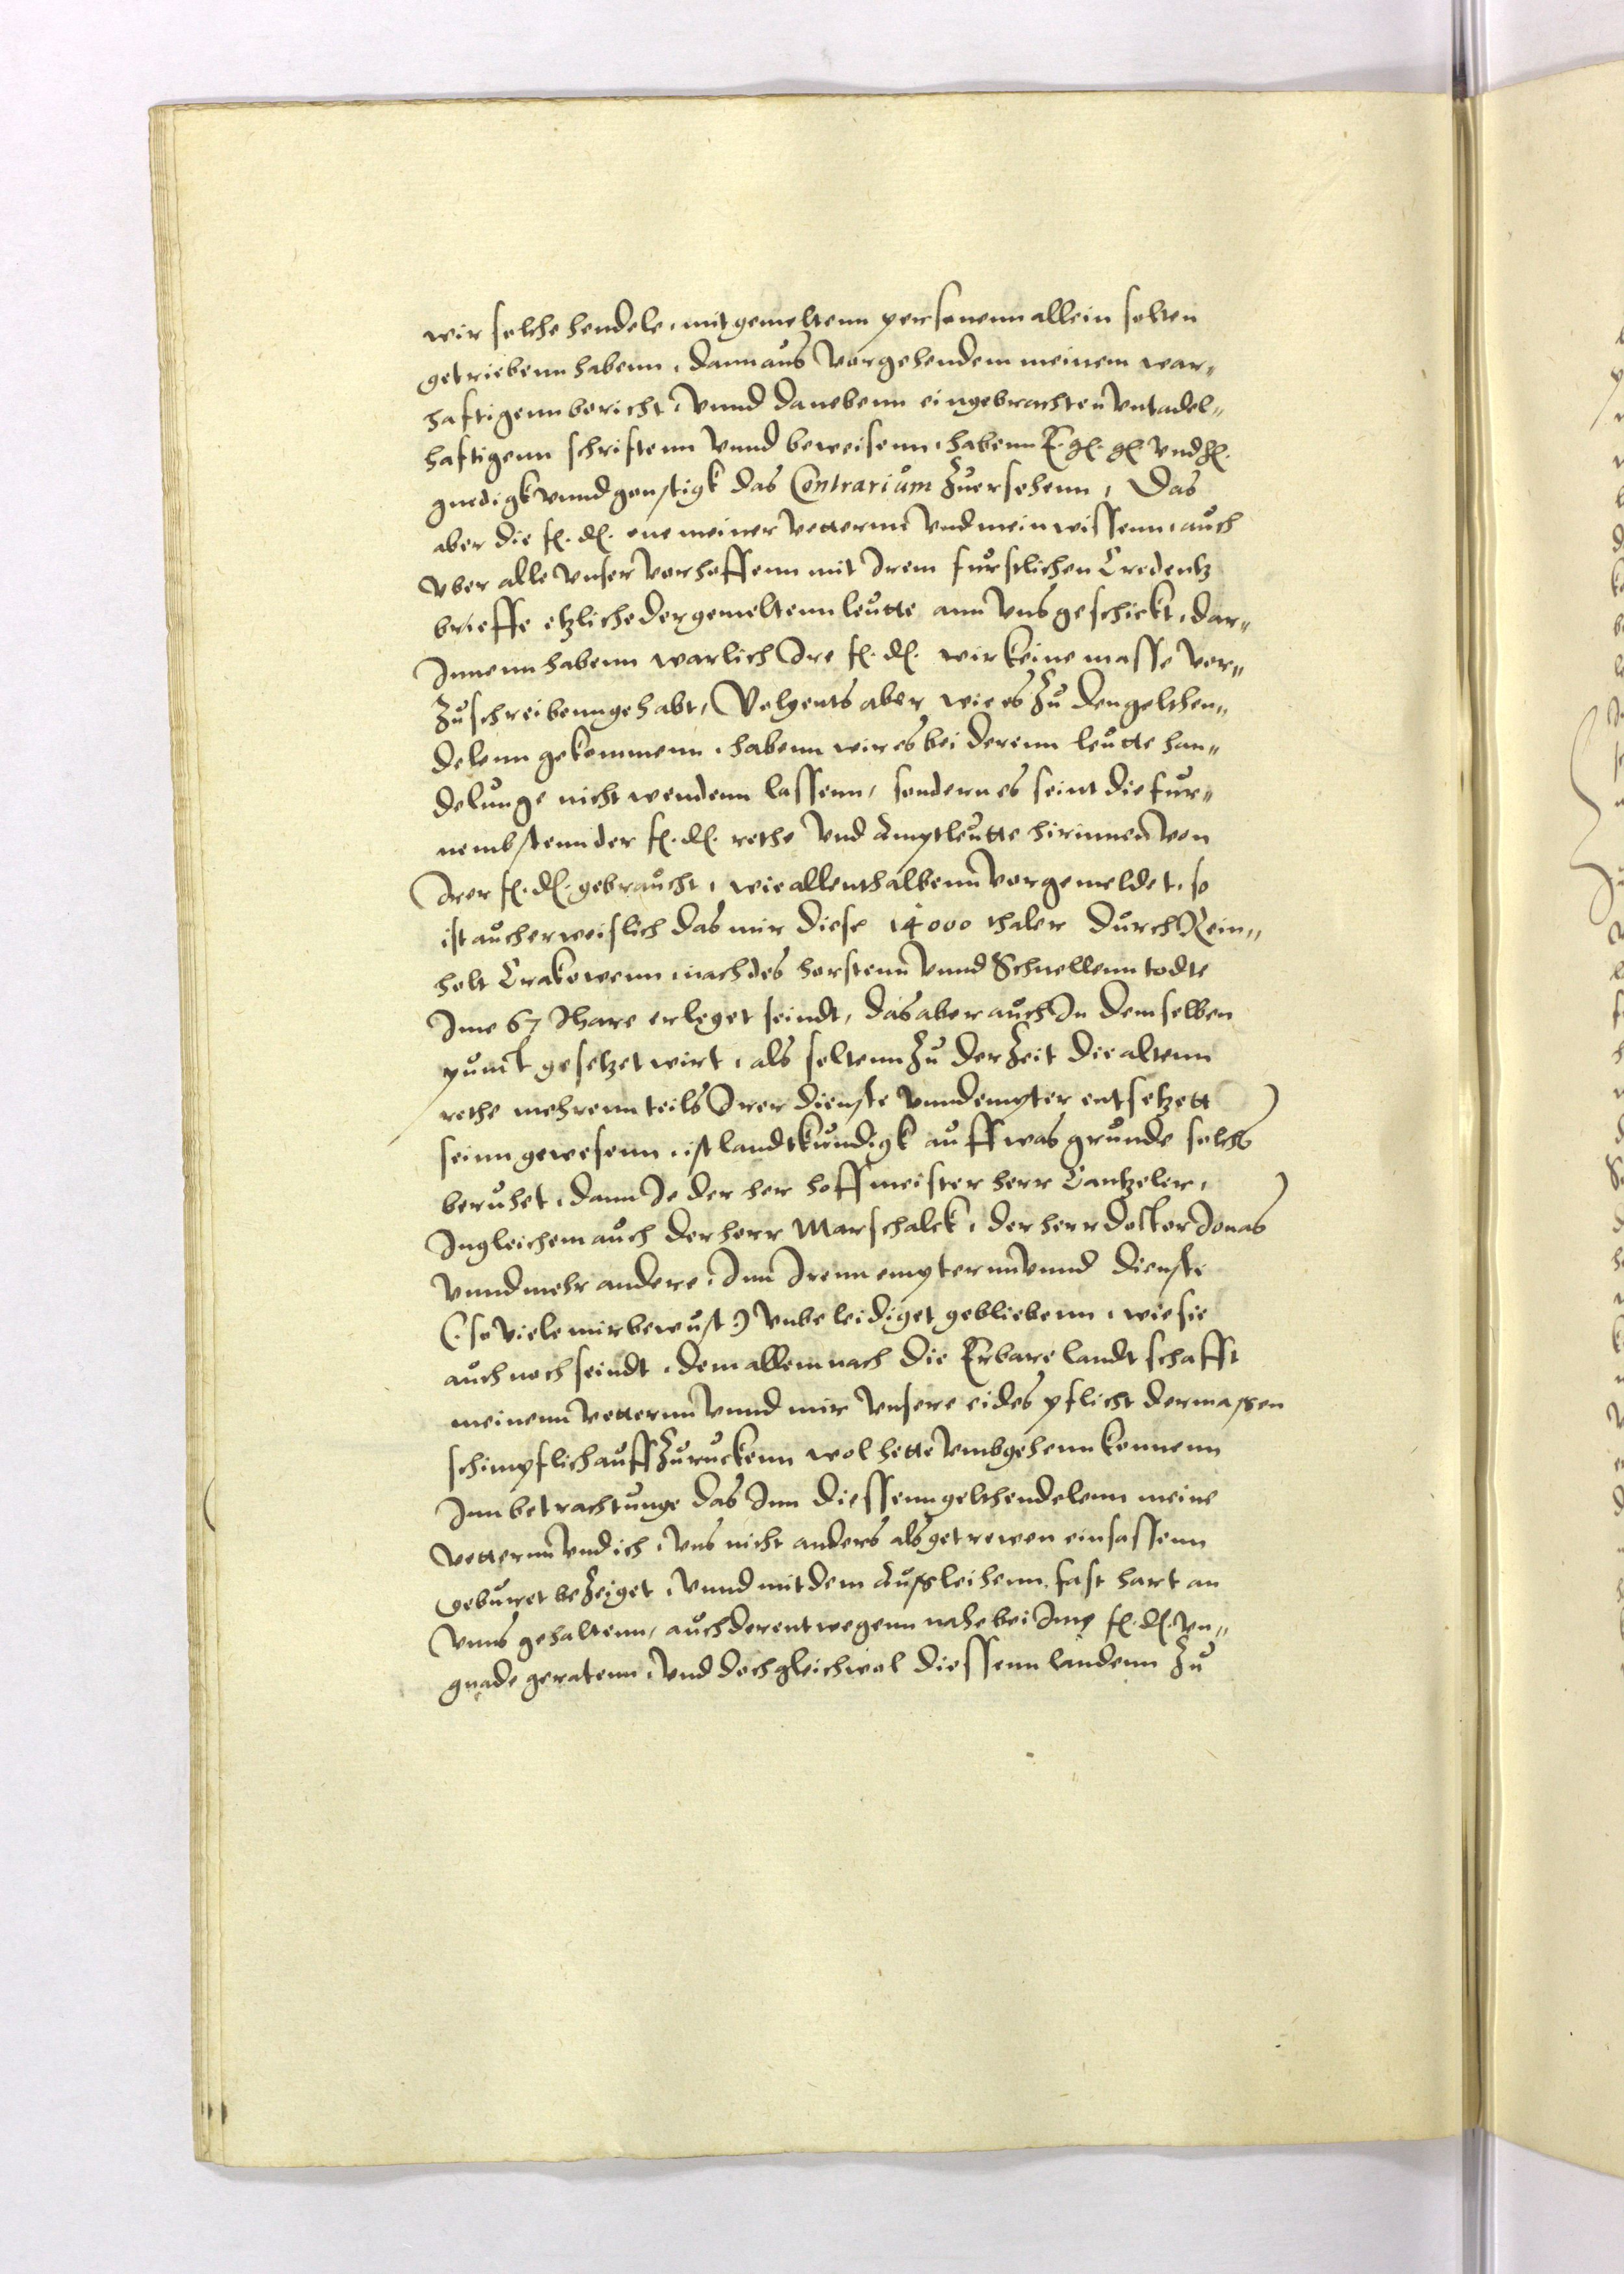 wir solche hendele, mit gemeltenn personenn allein solten
getriebenn habenn, dann aus vorgehendem meinem war„
haftigenn bericht, vnnd danebenn eingebrachten vntadel„
haftigenn schriftenn vnnd beweisenn, habenn E. g. g. vnd h.
gnedigk vnnd gonstigk das Contrarium zuersehenn, Das
aber die f. d. one meiner vetternn vnd mein wissenn, auch
vber alle vnser vorhoffenn mit Irem furstlichen Credentz
brieffe etzliche der gemeltenn leutte ann vns geschickt, dar„
Innenn habenn warlich Ire f. d. wir keine masse vor„
zuschreibenn gehabt, Volgents aber wie es zu den gelthen„
delenn gekommenn, habenn wir es bei derenn leutte han„
delunge nicht wendenn lassenn, sondern es seint die fur„
nembstenn der f. d. rethe vnd Amptleutte hirinnen von
Irer f. d. gebraucht, wie allenthalbenn vorgemeldet, so
ist auch erweislich das mir diese 14000 thaler durch Rein„
holt Crakowenn, nach des horstenn vnnd Schnellenn todte
Ime 67 Jhare erleget seindt, das aber auch In demselben
punct gesetzet wirt, als soltenn zu der zeit die altenn
rethe mehrenn teils Irer dienste vnnd empter entsetzett
seinn gewesenn, ist landtkundigk auff was grunde solchs
beruhet, dann Je der her hoffmeister herr Cantzeler,
Ingleichem auch der herr Marschalck, der herr docktor Jonas
vnnd mehr andere, Inn Irenn empternn vnnd dienste
(: so viele mir bewust :) vnbeleidiget gebliebenn, wie sie
auch noch seindt, dem allem nach die Erbare landtschafft
meinenn vetternn vnnd mir vnsere eides pflicht dermassen
schimpflich auffzuruckenn wol hette vmbgehenn konnenn
Inn betrachtunge das Inn diessenn gelthendelenn meine
vetternn vnd ich, vns nicht anders als getrewen einsassenn
geburet bezeiget, vnnd mit dem Ausleihenn, fast hart an
vnns gehaltenn, auch derentwegenn nahe bei f. d. vn„
gnade geratenn, vnd doch gleichwol diessenn landenn zu